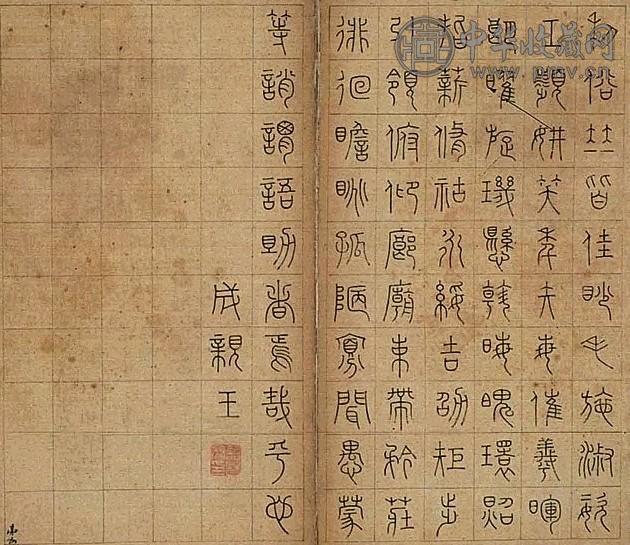 中华收藏网
www.pmv.cn
利俗竝皆佳眇毛施淑姿
工顰妍笑年矢每催羲暉
朗曜旋璣懸斡晦魄環照
指薪脩祜永綏吉劭矩步
引領俯仰廊廟束帶矜莊
徘徊瞻眺孤陋寡聞愚蒙
等誚謂語助者焉哉乎也
成親王